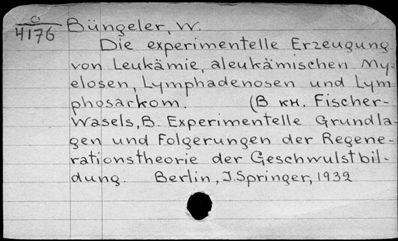 O
4176
Büngeler, W.
Die experimentelle Erzeugung
von Leukämie, aleukämischen My-
elosen, Lymphadenosen und Lym
phosarkom. (В кн. Fischer-
Wasels, B. Experimentelle Grundla-
gen und Folgerungen der Regene-
rationstheorie der Geschwulstbil-
dung. Berlin, J. Springer, 1932